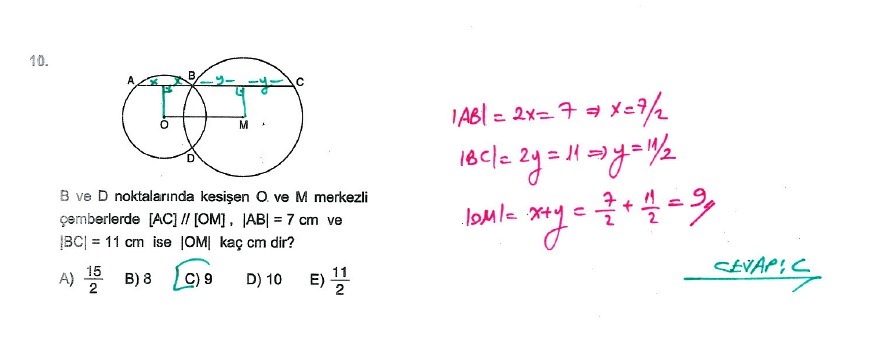 10.
A x x B -y- -y- C
O M
D
B ve D noktalarında kesişen O ve M merkezli
çemberlerde [AC] // [OM] , |AB| = 7 cm ve
|BC| = 11 cm ise |OM| kaç cm dir?
A) 15/2 B) 8 C) 9 D) 10 E) 11/2
|AB| = 2x = 7 ⇒ x = 7/2
|BC| = 2y = 11 ⇒ y = 11/2
|OM| = x+y = 7/2 + 11/2 = 9
CEVAP: C